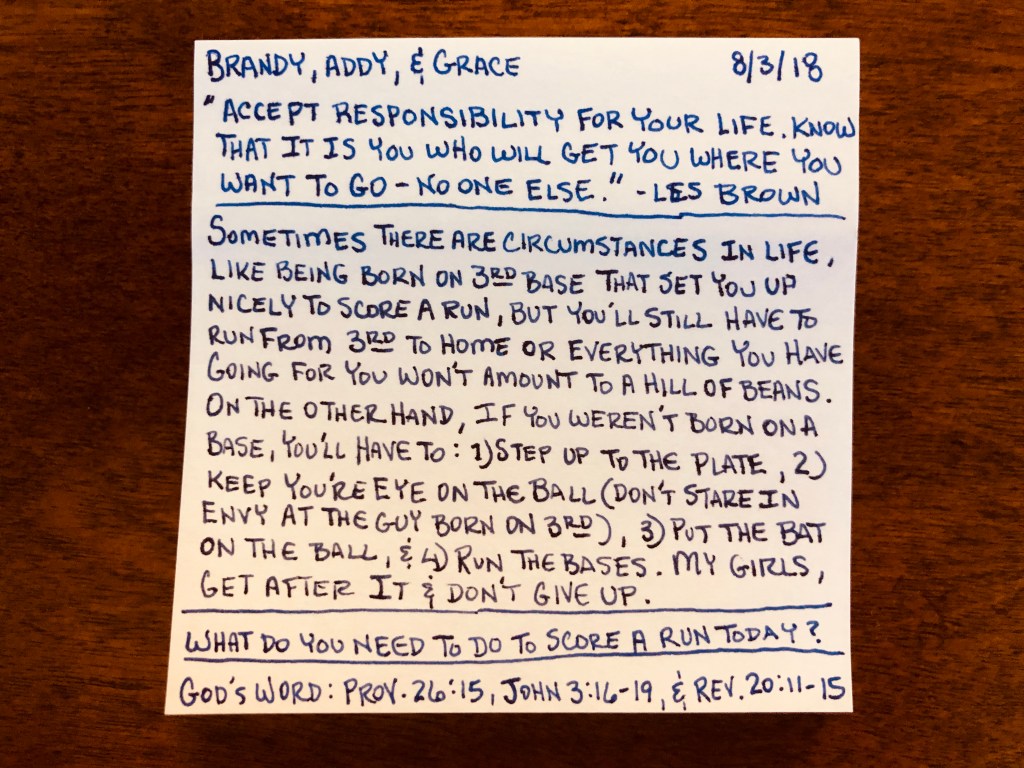 BRANDY, ADDY, & GRACE 8/3/18
"ACCEPT RESPONSIBILITY FOR YOUR LIFE. KNOW
THAT IT IS YOU WHO WILL GET YOU WHERE YOU
WANT TO GO - NO ONE ELSE." - LES BROWN
SOMETIMES THERE ARE CIRCUMSTANCES IN LIFE,
LIKE BEING BORN ON 3RD BASE THAT SET YOU UP
NICELY TO SCORE A RUN, BUT YOU'LL STILL HAVE TO
RUN FROM 3RD TO HOME OR EVERYTHING YOU HAVE
GOING FOR YOU WON'T AMOUNT TO A HILL OF BEANS.
ON THE OTHER HAND, IF YOU WEREN'T BORN ON A
BASE, YOU'LL HAVE TO: 1) STEP UP TO THE PLATE, 2)
KEEP YOU'RE EYE ON THE BALL (DON'T STARE IN
ENVY AT THE GUY BORN ON 3RD), 3) PUT THE BAT
ON THE BALL, & 4) RUN THE BASES. MY GIRLS,
GET AFTER IT & DON'T GIVE UP.
WHAT DO YOU NEED TO DO TO SCORE A RUN TODAY?
GOD'S WORD: PROV. 26:15, JOHN 3:16-19, & REV. 20:11-15